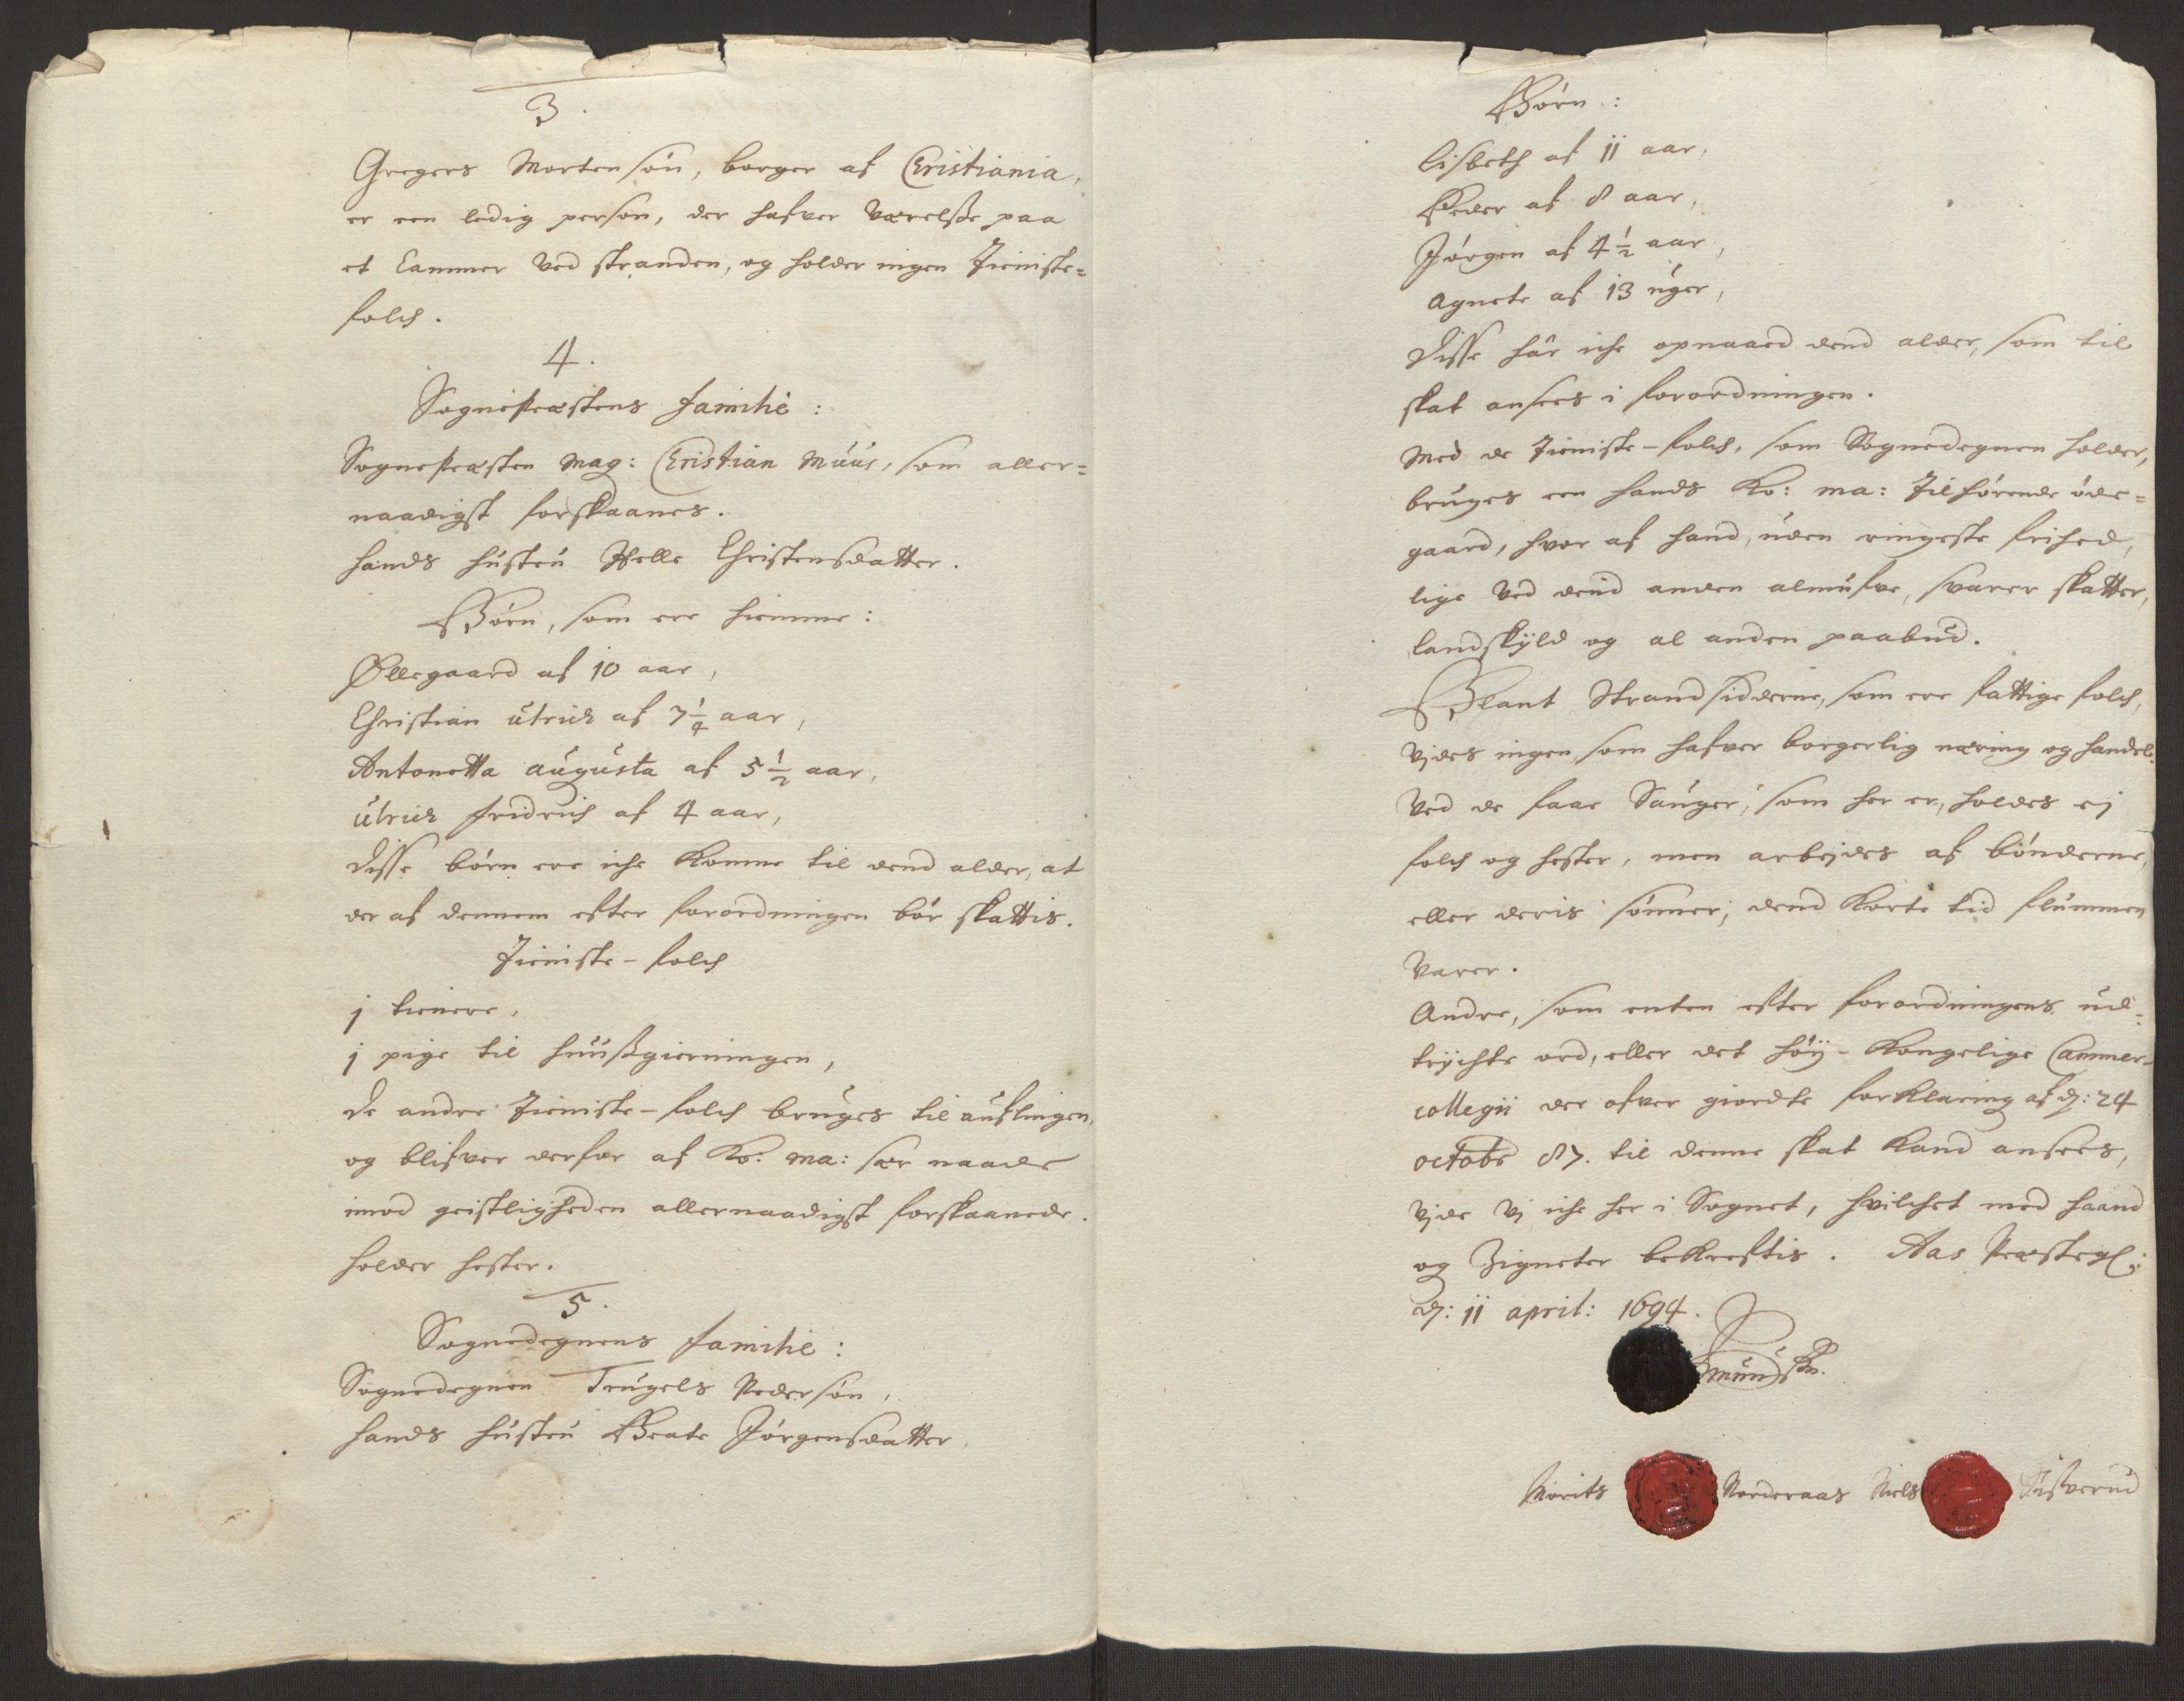 3.
Gregers Mortensøn, borger af Cristiania,
er een ledig person, der hafver værelsse paa
et Cammer ved stranden, og holder ingen Tieniste=
folch.
4.
Sognepræstens familie:
Sognepræsten Mag: Cristian Müüs, som aller=
naadigst forskaanes.
hands hústrú Helle Christensdatter.
Børn, som ere hiemme:
Øllegaard af 10 aar,
Christian úlrich af 7 1/4 aar,
Antonetta augústa af 5 1/2 aar,
úlrich fridrich af 4 aar,
disse børn ere iche komne til dend alder, at
der af dennem efter forordningen bør skattis.
Tieniste-folch
j tienere,
j pige til húúßgierningen,
de andre Tieniste-folch brúges til aúflingen,
og blifver derfor af Ko: ma: sær naade
imod geistligheden allernaadigst forskaanede.
holder hester.
5.
Sognedegnens familie:
Sognedegnen Trúgels Pedersøn,
hands hústrú Beate Jørgensdatter,
Børn:
Lisbeth af 11 aar,
Peder af 8 aar,
Jørgen af 4 1/2 aar,
Agnete af 13 úger,
disse hár iche opnaaed dend alder, som til
skat ansees i forordningen.
Med de Tieniste-folch, som Sognedegnen holder,
brúges een hands Ko: ma: Tilhørende øde=
gaard, hvor af hand, úden ringeste frihed,
lige ved dend anden almúfve, svarer skatter,
landskyld og al anden paabúd.
Blant Strandsidderne, som ere fattige folch,
vides ingen, som hafver borgerlig næring og handel.
Ved de faae Sauger, som her er, holdes ej
folch og hester, men arbejdes af bønderne,
eller deris sønner, dend korte tid flúmmen
varer.
Andre, som enten efter forordningens úd=
trychte ord, eller det høy-Kongelige Cammer-
collegii der ofver giordte forklaring af d: 24
octobr 87. til denne skat kand ansees,
vide vj iche her i Sognet, hvilchet med haand
og Zigneter bekreftis. Aas Præstegl:
d: 11 april: 1694.
Morits Norderaas Niels